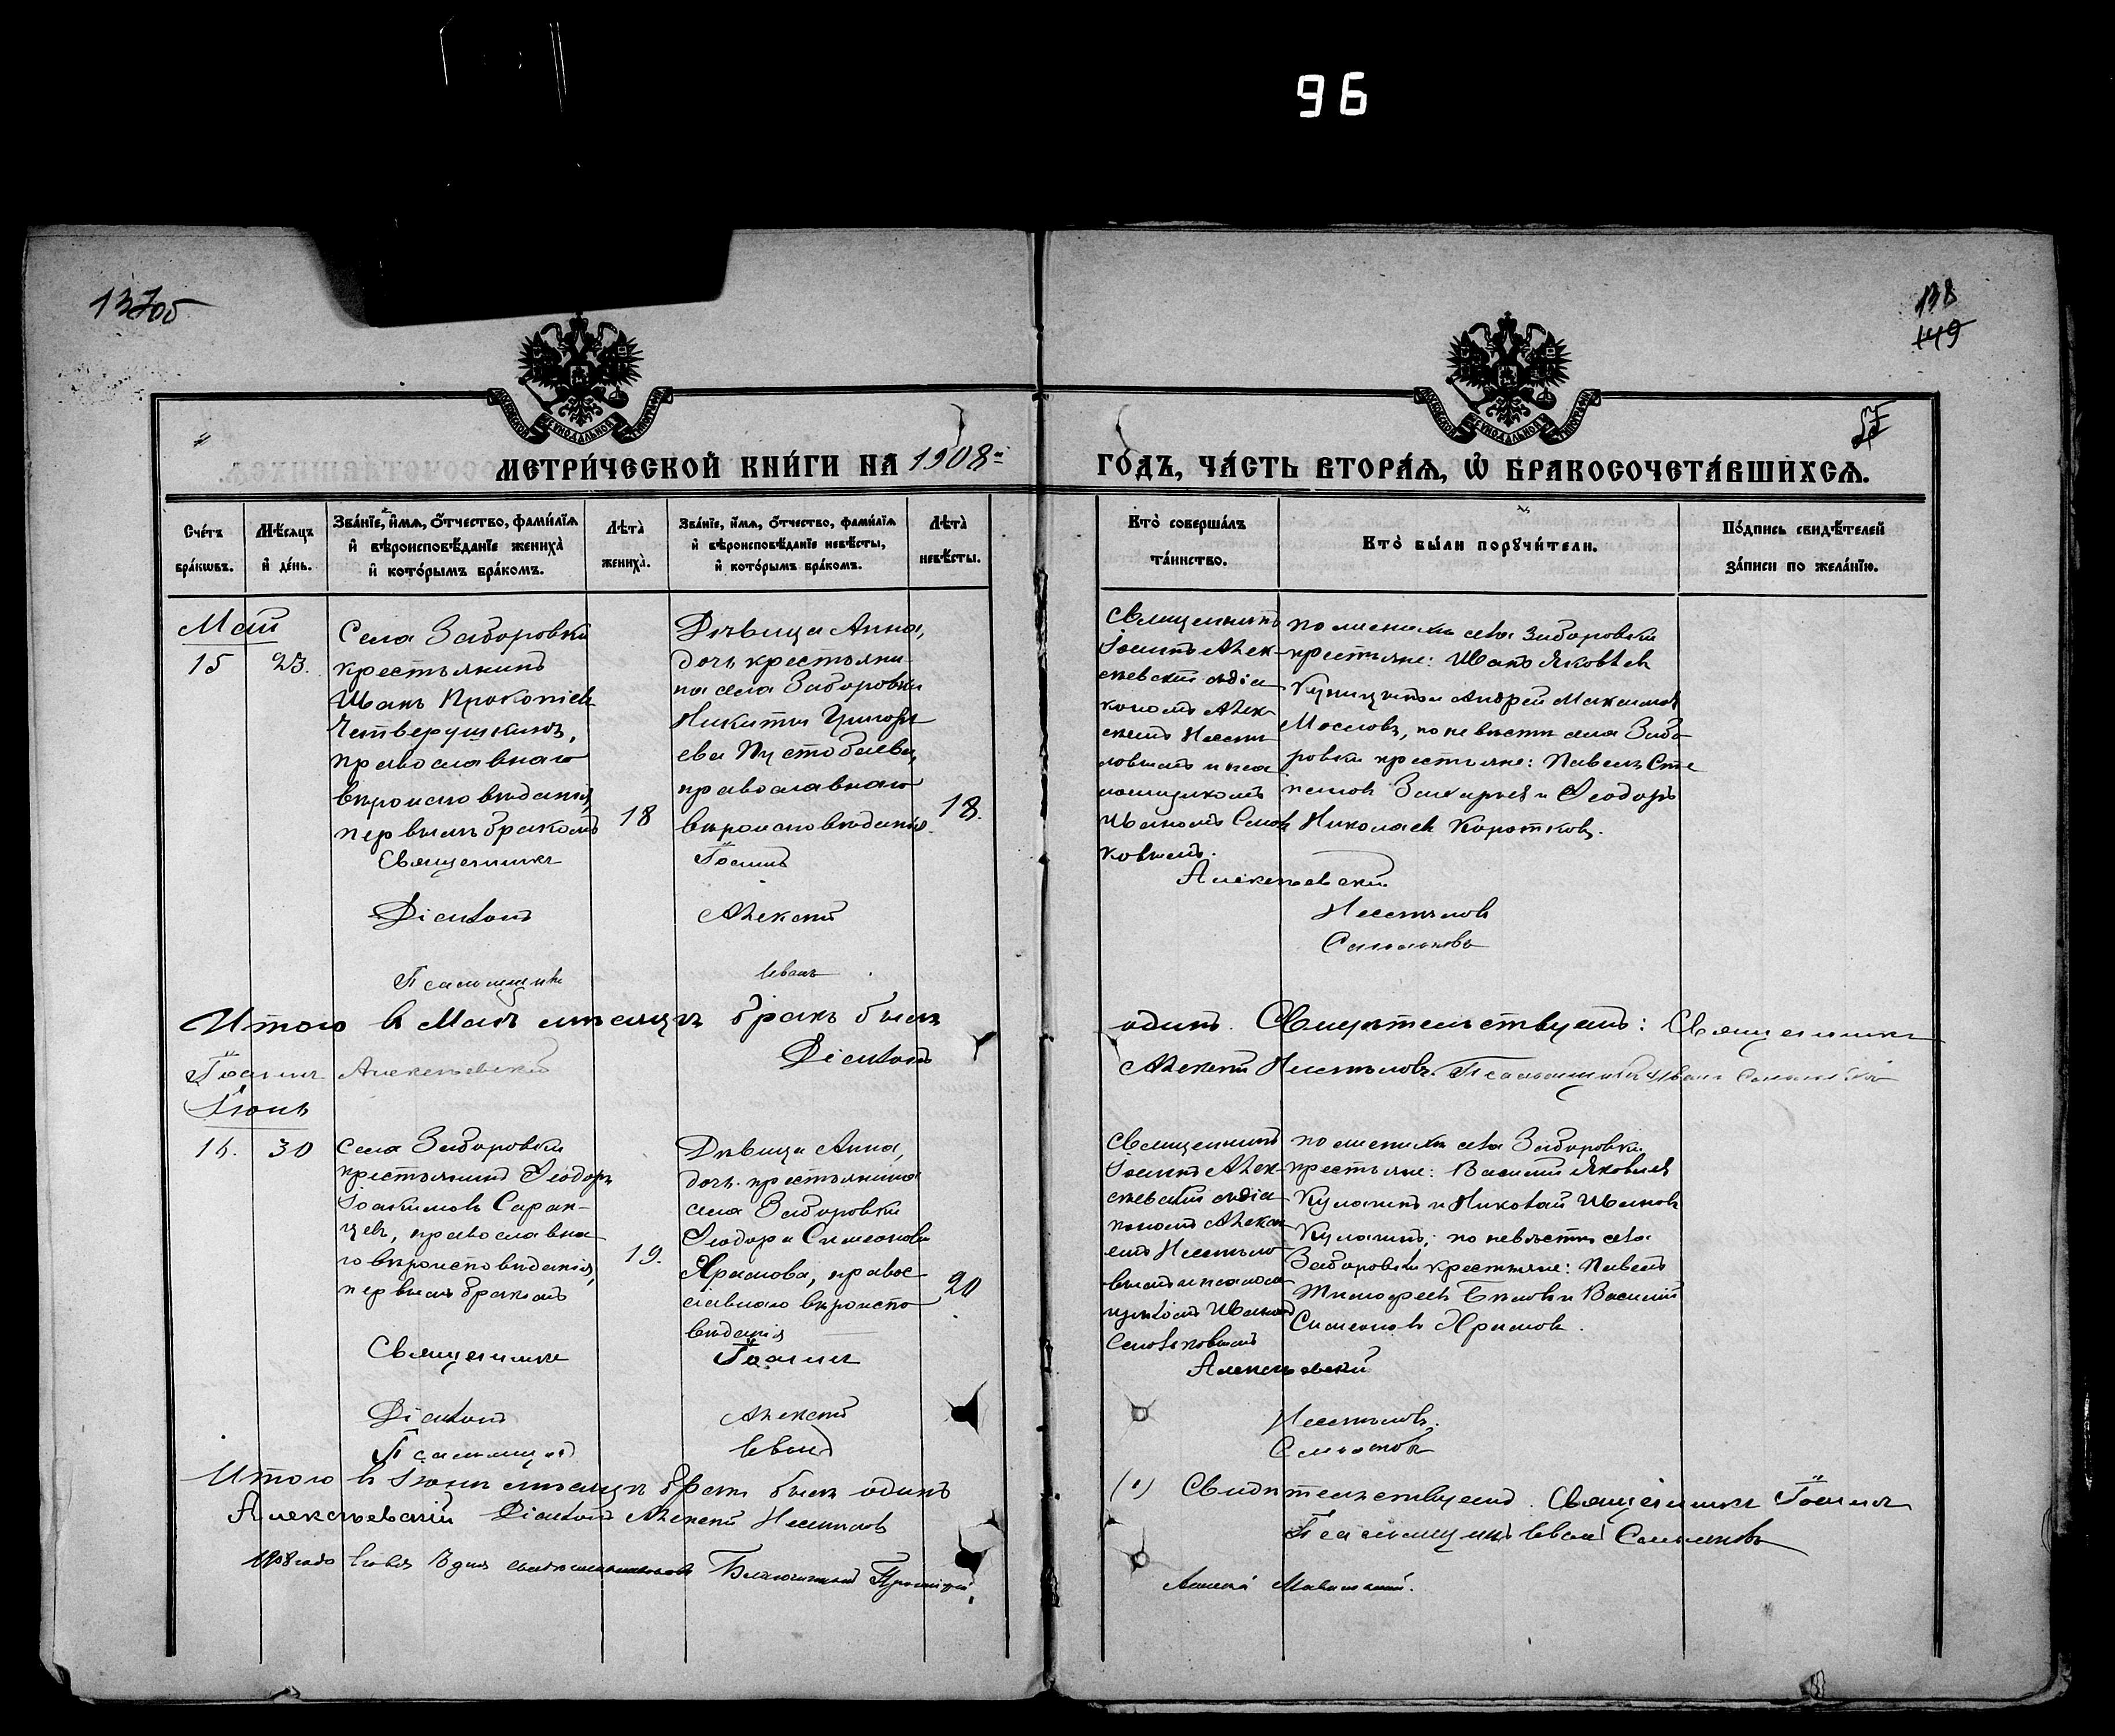 96
137об
138
149
МОСКОВСКОЙ СѴНОДАЛЬНОЙ ТИПОГРАФІИ
МОСКОВСКОЙ СѴНОДАЛЬНОЙ ТИПОГРАФІИ
МЕТРИ́ЧЕСКОЙ КНИ́ГИ НА 1908й
ГО́ДЪ, ЧА́СТЬ ВТОРА́Ѧ, Ѡ҆ БРАКОСОЧЕТА́ВШИХСѦ.
Сче́тъ
бра́кѡвъ.
Мѣ́сяцъ
и҆ де́нь.
Зва́нїе, и҆́мѧ, ѻ҆́тчество, фами́лїѧ
и҆ вѣроисповѣ́данїе жениха̀
и҆ кото́рымъ бра́комъ.
Лѣта̀
жениха̀.
Зва́нїе, и҆́мѧ, ѻ҆́тчество, фами́лїѧ
и҆ вѣроисповѣ́данїе невѣ́сты,
и҆ кото́рымъ бра́комъ.
Лѣта̀
невѣ́сты.
Кто̀ соверша́лъ
та́инство.
Кто̀ бы́ли порꙋчи́тели.
По́дпись свидѣ́телей
за́писи по жела́нїю.
Май
15
23.
Села Заборовки
крестьянинъ
Иванъ Прокопіевъ
Четверушкинъ,
православнаго
вѣроисповѣданія,
первымъ бракомъ
18
Дѣвица Анна,
дочь крестьяни-
на села Заборовки
Никиты Григорь
ева Пустобаева,
православнаго
вѣроисповѣданія.
18.
Священникъ
Іоаннъ Алек-
сѣевскій съ діа
кономъ Алек-
сѣемъ Несмѣ
ловымъ и пса
ломщикомъ
Иваномъ Смоль
ковымъ.
по женихѣ села Заборовки
крестьяне: Иванъ Яковлевъ
Куницынъ и Андрей Максимовъ
Масловъ, по невѣстѣ села Забо-
ровки крестьяне: Павелъ Сте
пановъ Захарьевъ и Ѳеодоръ
Николаевъ Коротковъ.
Священникъ
Іоаннъ
Алексѣевскій
Діаконъ
Алексѣй
Несмѣловъ
Псаломщикъ
Иванъ
Смольковъ
Итого въ Маѣ мѣсяцѣ бракъ былъ
одинъ. Свидѣтельствуемъ: Священникъ
Іоаннъ Алексѣевскій
Діаконъ
Алексѣй Несмѣловъ. Псаломщикъ Иванъ Смольковъ
Іюнь
16.
30
Села Заборовки
крестьянинъ Ѳеодоръ
Іоакимовъ Саран-
цевъ, православна-
го вѣроисповѣданія,
первымъ бракомъ
19.
Дѣвица Анна,
дочь крестьянина
села Заборовки
Ѳеодора Симеонова
Храмова, правос-
лавнаго вѣроиспо
вѣданія
20
Священникъ
Іоаннъ Алек-
сѣевскій съ діа
кономъ Алексѣ
емъ Несмѣло
вымъ и псалом
щикомъ Иваномъ
Смольковымъ
по женихѣ села Заборовки
крестьяне: Василій Яковлевъ
Кулагинъ и Николай Ивановъ
Кулагинъ; по невѣстѣ села
Заборовки крестьяне: Павелъ
Тимофеевъ Бѣловъ и Василій
Симеоновъ Храмовъ.
Священникъ
Іоаннъ
Алексѣевскій
Діаконъ
Алексѣй
Несмѣловъ.
Псаломщикъ
Иванъ
Смольковъ
Итого въ Іюнѣ мѣсяцѣ бракъ былъ одинъ
(1) Свидѣтельствуемъ. Священникъ Іоаннъ
Алексѣевскій Діаконъ Алексѣй Несмѣловъ
Псаломщикъ Иванъ Смольковъ
1908 года Іюля дня Благочинный